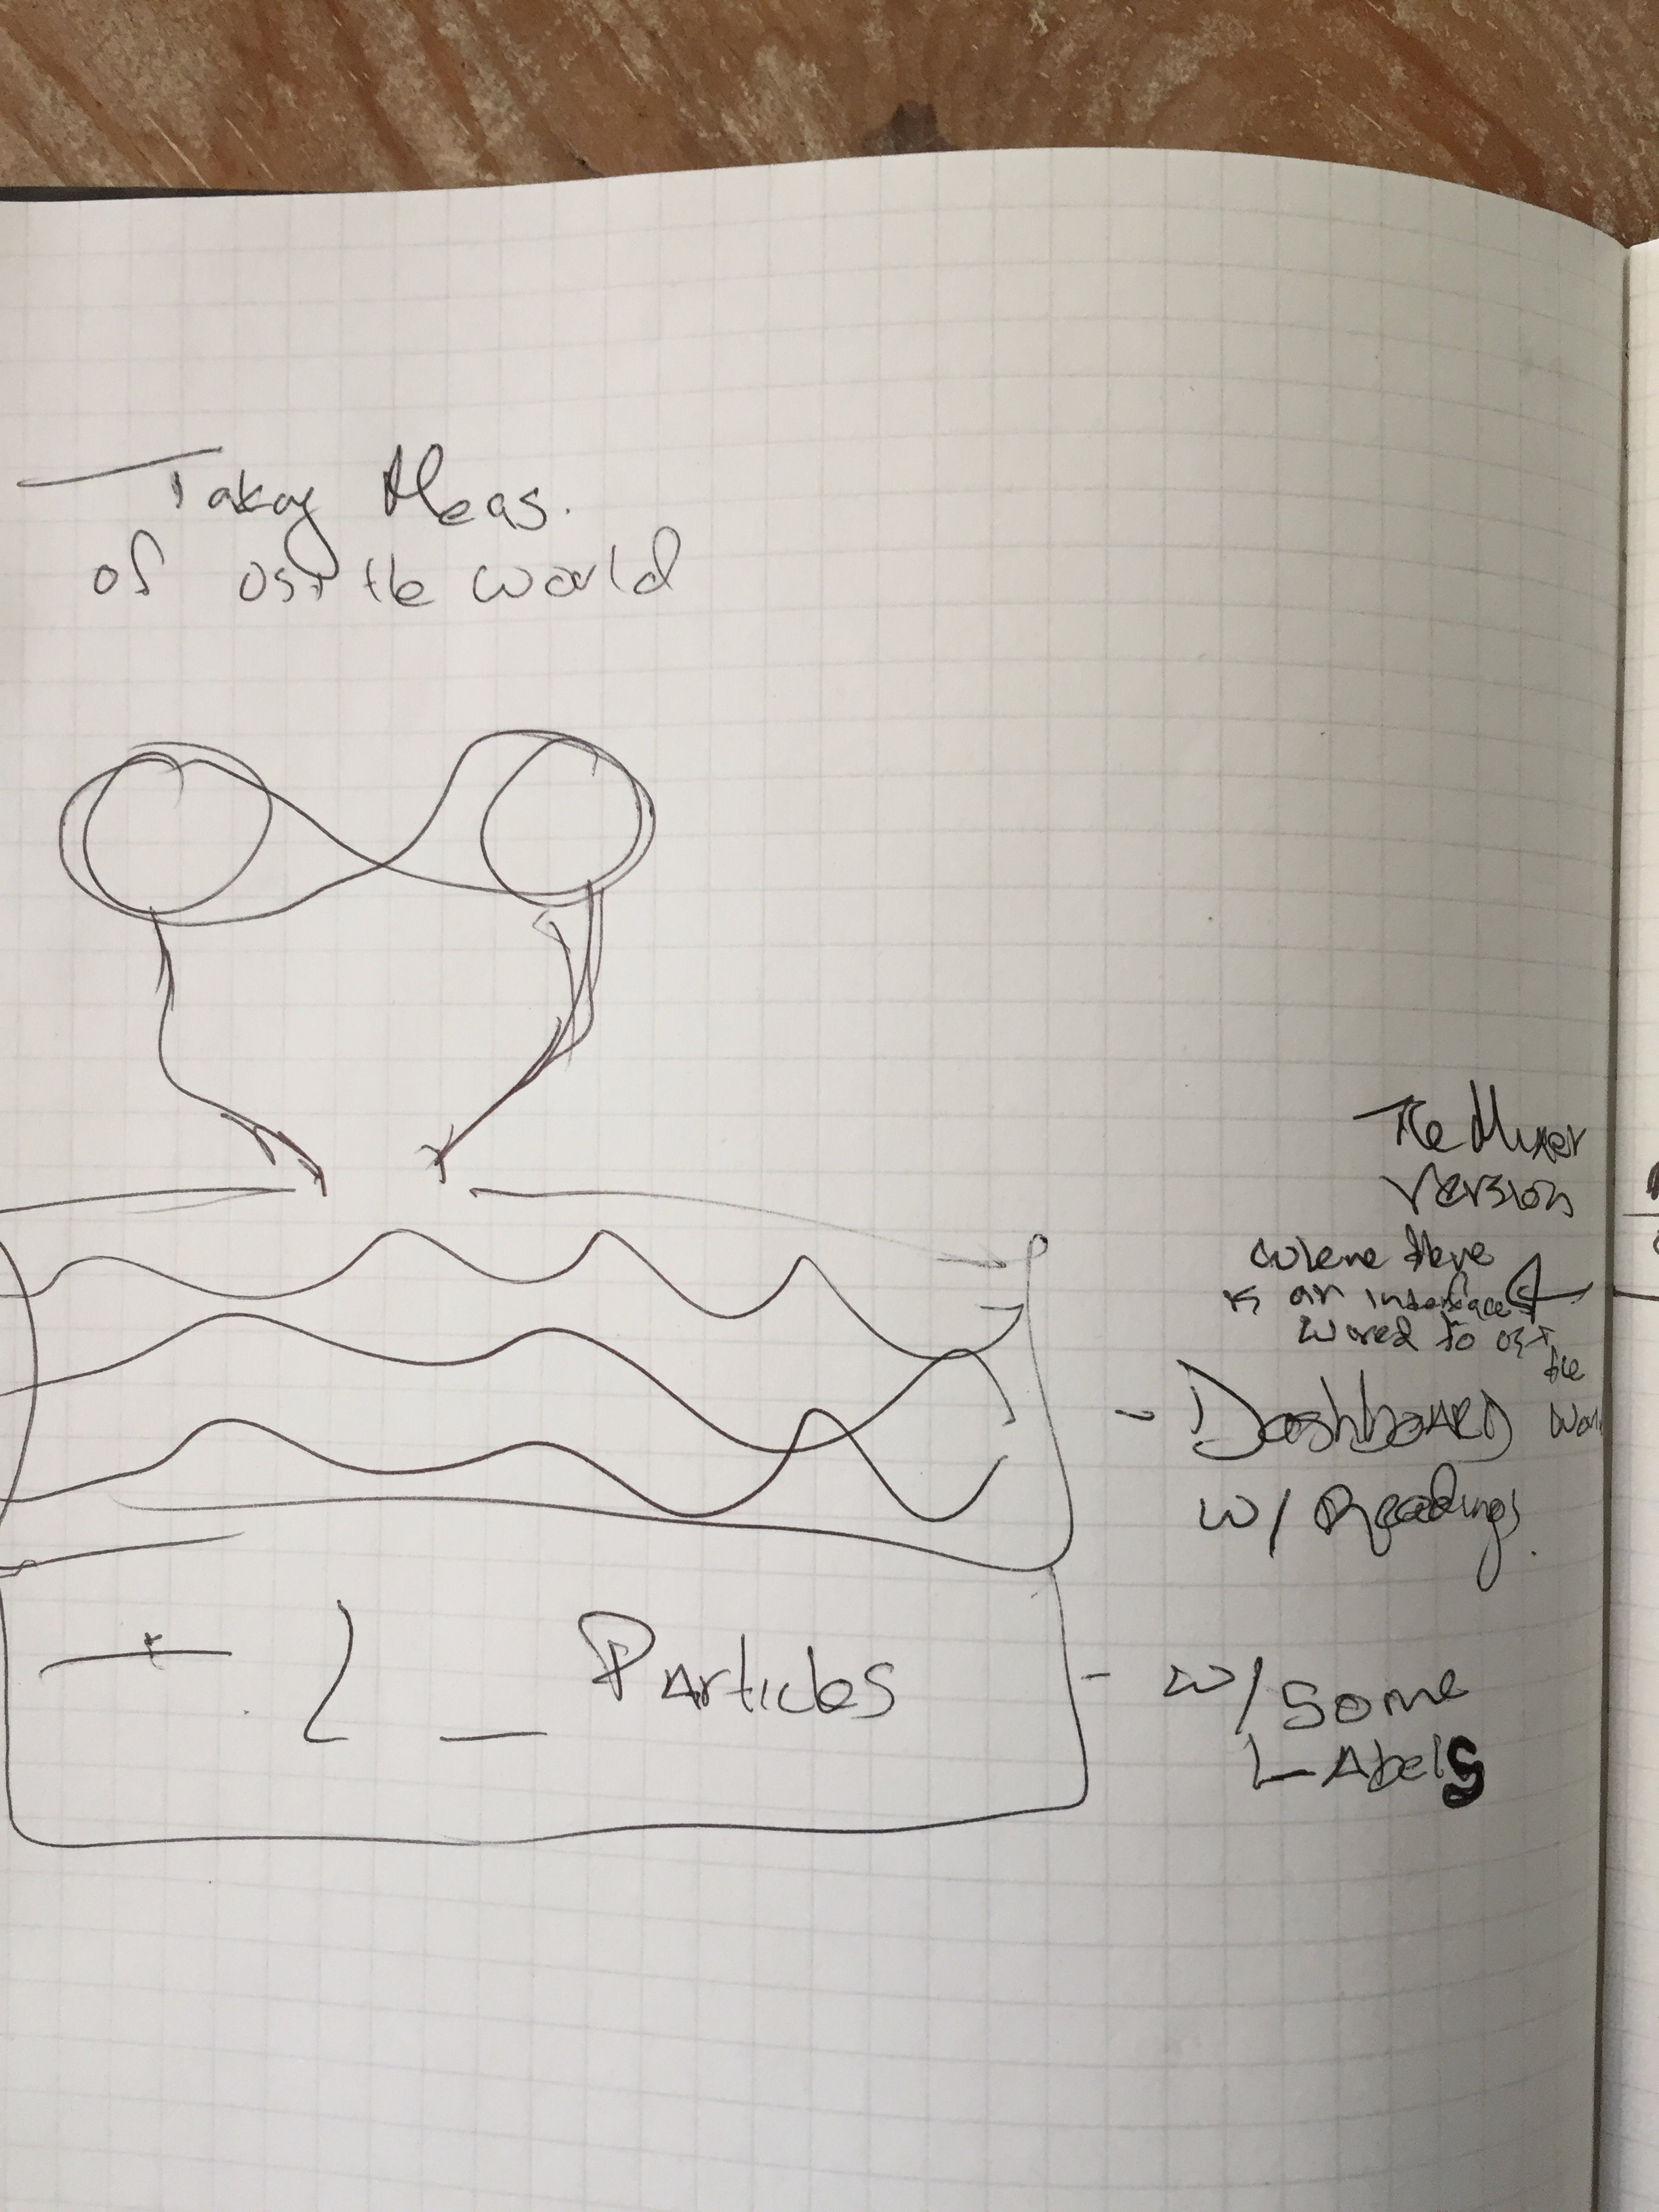 Taking Meas.
of ost the world
The Mixer
Version
where there
is an interface
wired to ost
the
Worl
- Dashboard
w/ Readings.
Particles
- w/ Some
Labels